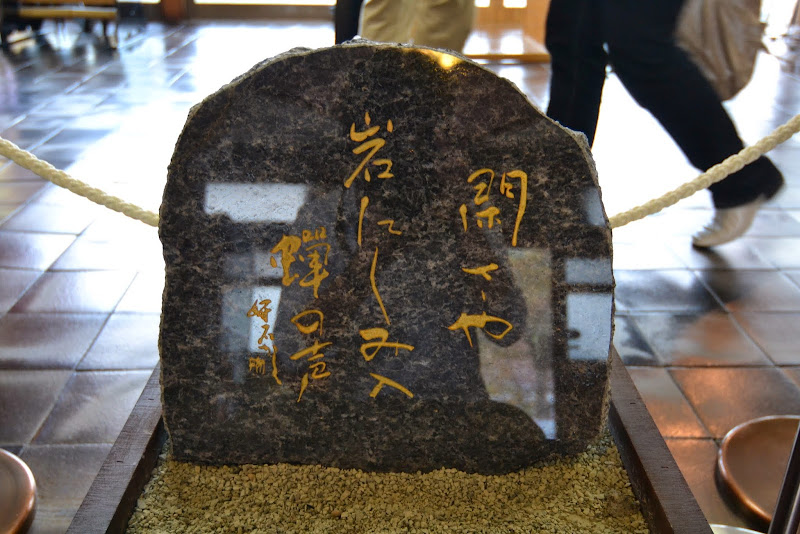 閑さや
岩にしみ入
蝉の声